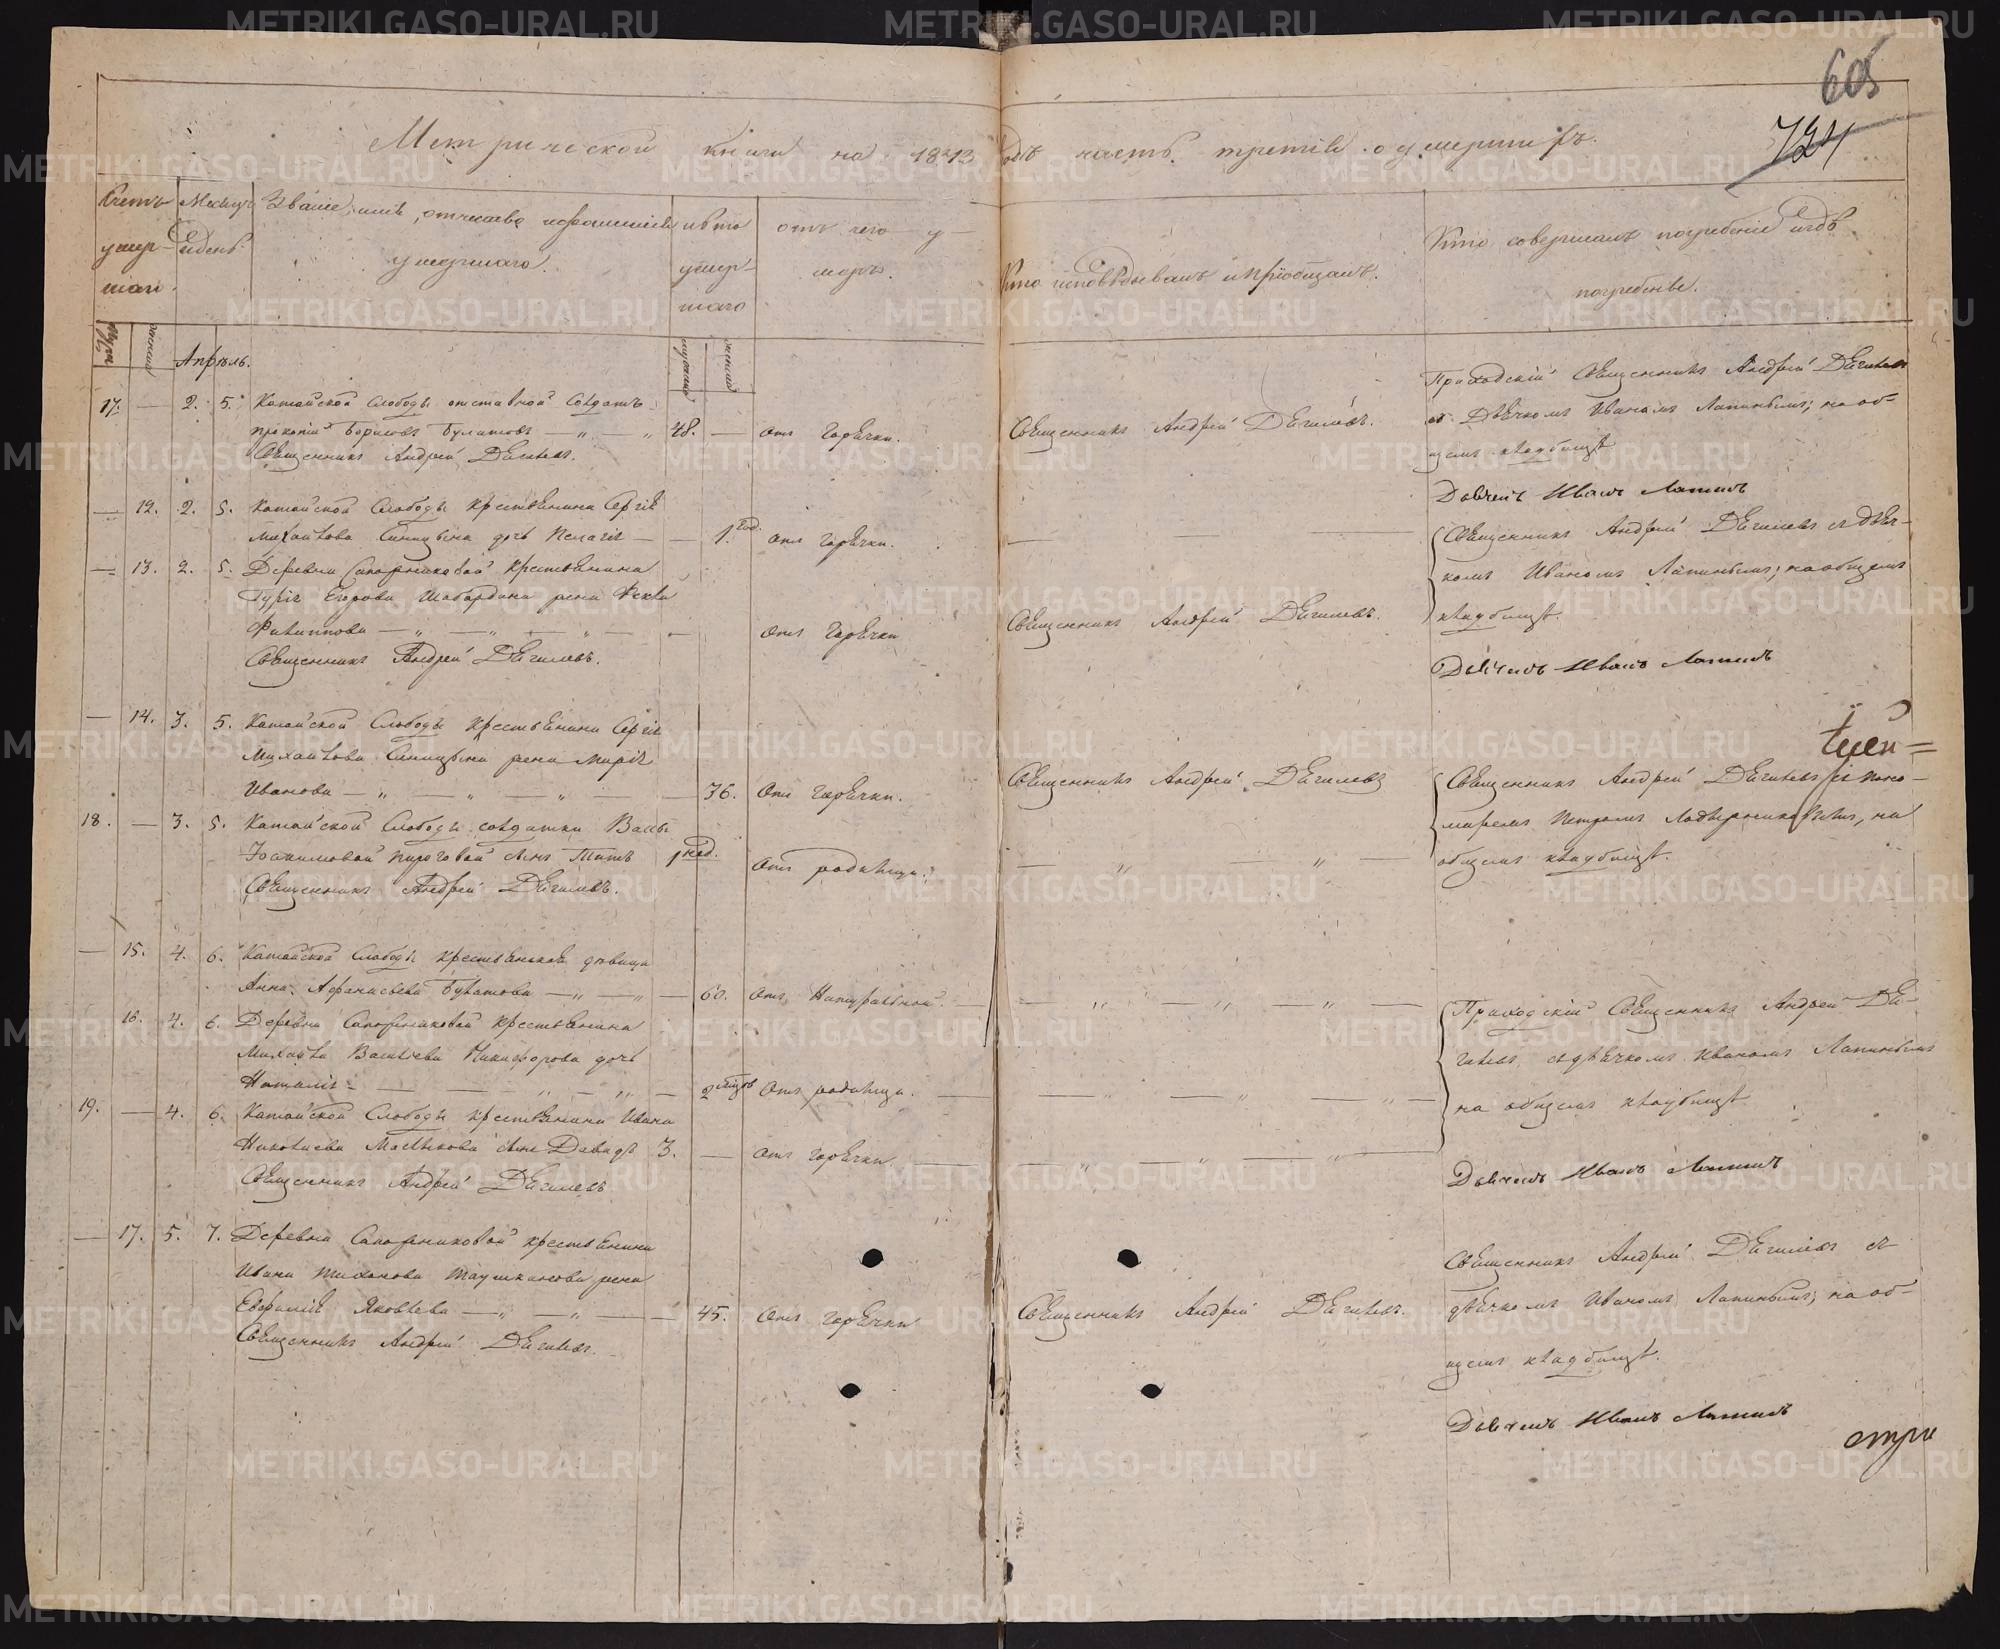 605
724
Метрической книги на 1843 годъ часть третія о умершихъ.
Счетъ умер-шихъ.
Месяцъ и день
Званіе, имя, отчество и фамилія умершаго.
лѣта умер-шаго
отъ чего у-меръ.
Кто исповѣдывалъ и пріобщалъ.
Кто совершалъ погребеніе и гдѣ погребены.
Апрѣль.
17. — 2. 5. Катайской Слободы отставной Солдатъ
Прокопій Борисовъ Булатовъ — „ — „ 48. — Отъ горячки. Священникъ Андрей Дягилевъ.
Священникъ Андрей Дягилевъ.
Приходскій Священникъ Андрей Дягилевъ
съ Дьячкомъ Иваномъ Лапинымъ; на об-
щемъ кладбищѣ
Дьячекъ Иванъ Лапинъ
— 12. 2. 5. Катайской Слободы крестьянина Сергія
Михайлова Синицына дочь Пелагія — — 1. год. Отъ горячки.
— 13. 2. 5. Деревни Сапожниковой крестьянина
Гурія Егорова Шабардина жена Фекла
Филиппова — „ — „ — „ — Отъ горячки Священникъ Андрей Дягилевъ.
Священникъ Андрей Дягилевъ.
Священникъ Андрей Дягилевъ съ дьяч-
комъ Иваномъ Лапинымъ; на общемъ
кладбищѣ.
Дьячекъ Иванъ Лапинъ
— 14. 3. 5. Катайской Слободы крестьянина Сергія
Михайлова Синицына жена Марія
Иванова — „ — „ — „ — 36. Отъ горячки. Священникъ Андрей Дягилевъ
18. — 3. 5. Катайской Слободы солдатки
Іоакимовой Пироговой сынъ Титъ 1 нед. Отъ родимца. — „ — „ —
Священникъ Андрей Дягилевъ.
Священникъ Андрей Дягилевъ съ поно-
маремъ Петромъ на
общемъ кладбищѣ.
— 15. 4. 6. Катайской Слободы крестьянская дѣвица
Анна Афанасьева Булатова — „ — „ — 60. Отъ Натуральной — „ — „ — „ —
16. 4. 6. Деревни Сапожниковой крестьянина
Михайла Васильева Никифорова дочь
Наталія — — — „ — „ — 2 мѣсяц. Отъ родимца. — „ — „ — „ —
19. — 4. 6. Катайской Слободы крестьянина Ивана
Николаева Маслыкова сынъ Давидъ 3. — Отъ горячки — „ — „ — „ —
Священникъ Андрей Дягилевъ
Приходскій Священникъ Андрей Дя-
гилевъ съ дьячкомъ Иваномъ Лапинымъ
на общемъ кладбищѣ
Дьячекъ Иванъ Лапинъ
— 17. 5. 7. Деревни Сапожниковой крестьянина
Ивана Тихонова Таушканова жена
Евфимія Яковлева — „ — „ — — 45. Отъ горячки Священникъ Андрей Дягилевъ.
Священникъ Андрей Дягилевъ.
Священникъ Андрей Дягилевъ съ
дьячкомъ Иваномъ Лапинымъ; на об-
щемъ кладбищѣ.
Дьячекъ Иванъ Лапинъ
METRIKI.GASO-URAL.RU